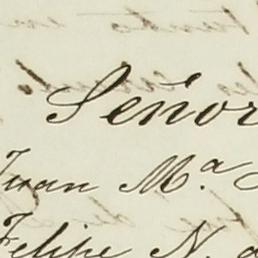 Señor
Juan M.ª
Felipe N.